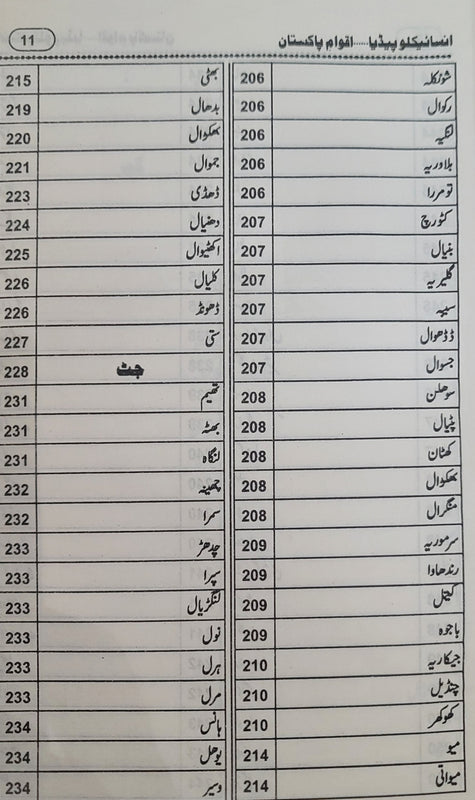 انسائیکلوپیڈیا.....اقوام پاکستان 11
شونکلہ 206
رکوال 206
لنگیہ 206
بلاوریہ 206
تومررا 206
کٹورچ 207
بنیال 207
گلیریہ 207
سیپہ 207
ڈڈھوال 207
جسوال 207
سوھلن 208
پٹیال 208
کھٹان 208
بھکوال 208
منگرال 208
سرموریہ 209
رندھاوا 209
کیتھل 209
باجوہ 209
جیکاریہ 210
چنڈیل 210
کھوکھر 210
میو 214
میواتی 214
بھٹی 215
بدھال 219
بھکوال 220
جموال 221
ڈھڈی 223
دھنیال 224
اکھیوال 225
کلیال 226
ڈھونڈ 226
ستی 227
جٹ 228
تھیم 231
بھٹہ 231
لنگاہ 231
چھینہ 232
سمرا 232
چدھڑ 233
سپرا 233
لنگڑیال 233
نول 233
ہرل 233
مرل 233
ہانس 234
یوھل 234
وسیر 234